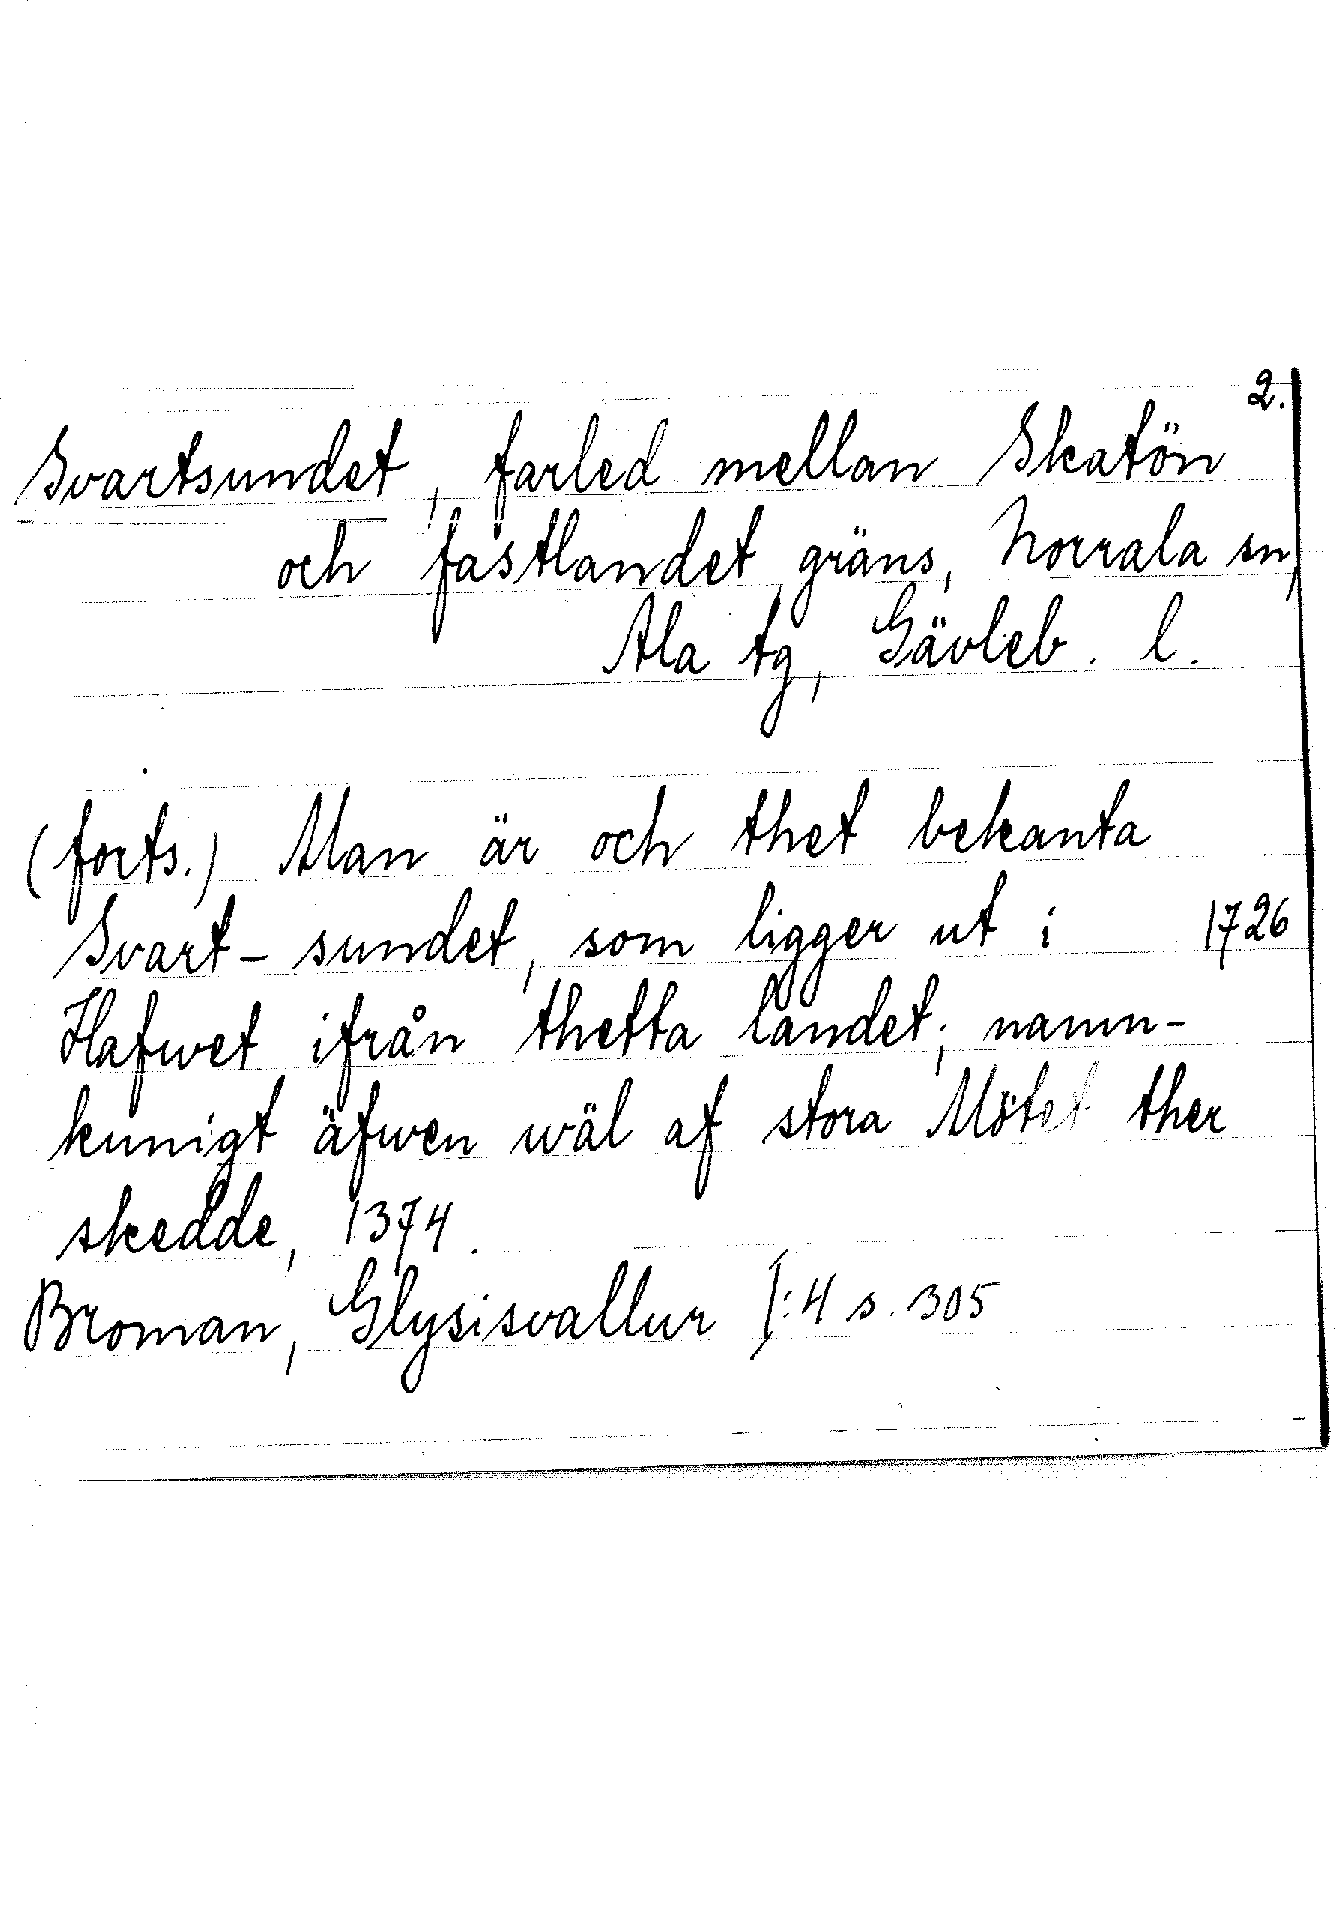 2.
Svartsundet, farled mellan Skatön
och fastlandet, gräns, Norrala sn,
Ala tg, Gävleb. l.
(forts.) Man är och thet bekanta
Svart-sundet, som ligger ut i 1726
Hafwet ifrån thetta landet; namn-
kunigt äfwen wäl af stora Mötet ther
skedde, 1374.
Broman, Glysisvallur I:4 s. 305